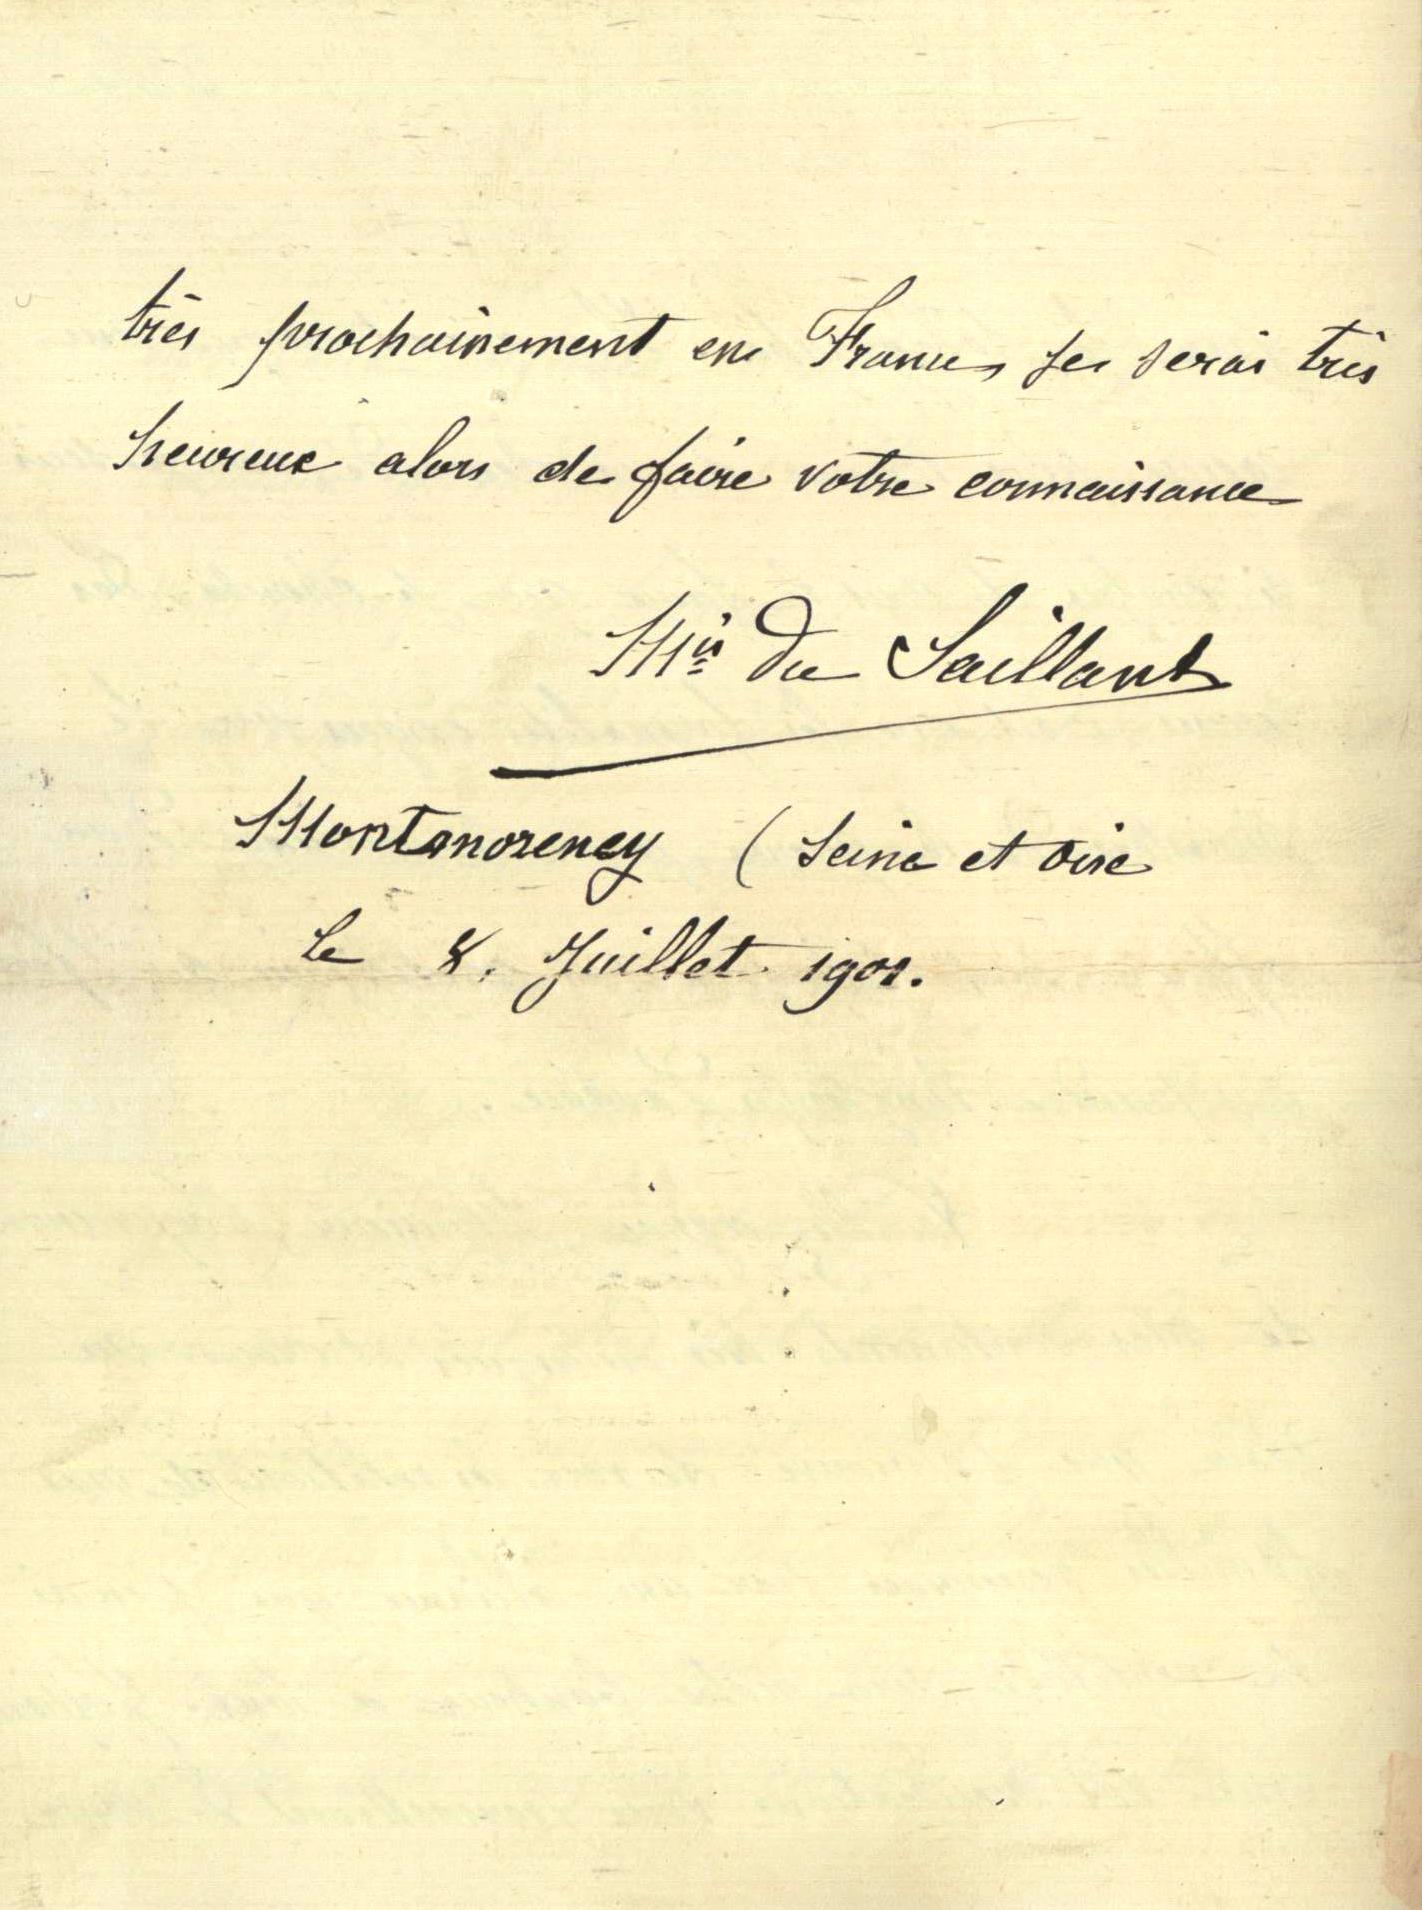 très prochainement en France, je serai très
heureux alors de faire votre connaissance
Mis du Saillant
Montmorency (Seine et Oise
le 8. Juillet 1901.